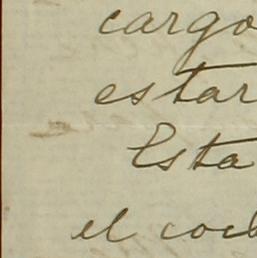 cargo
estar
Esta
el coch